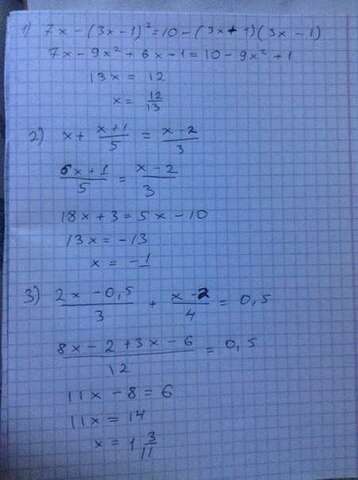 1) 7x - (3x - 1)² = 10 - (3x + 1)(3x - 1)
7x - 9x² + 6x - 1 = 10 - 9x² + 1
13x = 12
x = 12/13
2) x + (x+1)/5 = (x-2)/3
(6x+1)/5 = (x-2)/3
18x + 3 = 5x - 10
13x = -13
x = -1
3) (2x - 0,5)/3 + (x-2)/4 = 0,5
(8x - 2 + 3x - 6)/12 = 0,5
11x - 8 = 6
11x = 14
x = 1 3/11